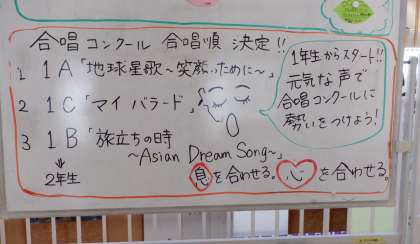 合唱コンクール 合唱順 決定!!
1 1A「地球星歌～笑顔のために～」
2 1C「マイ バラード」
3 1B「旅立ちの時
～Asian Dream Song～」
⇓
2年生
1年生からスタート!!
元気な声で
合唱コンクールに
勢いをつけよう!
息を合わせる。心を合わせる。